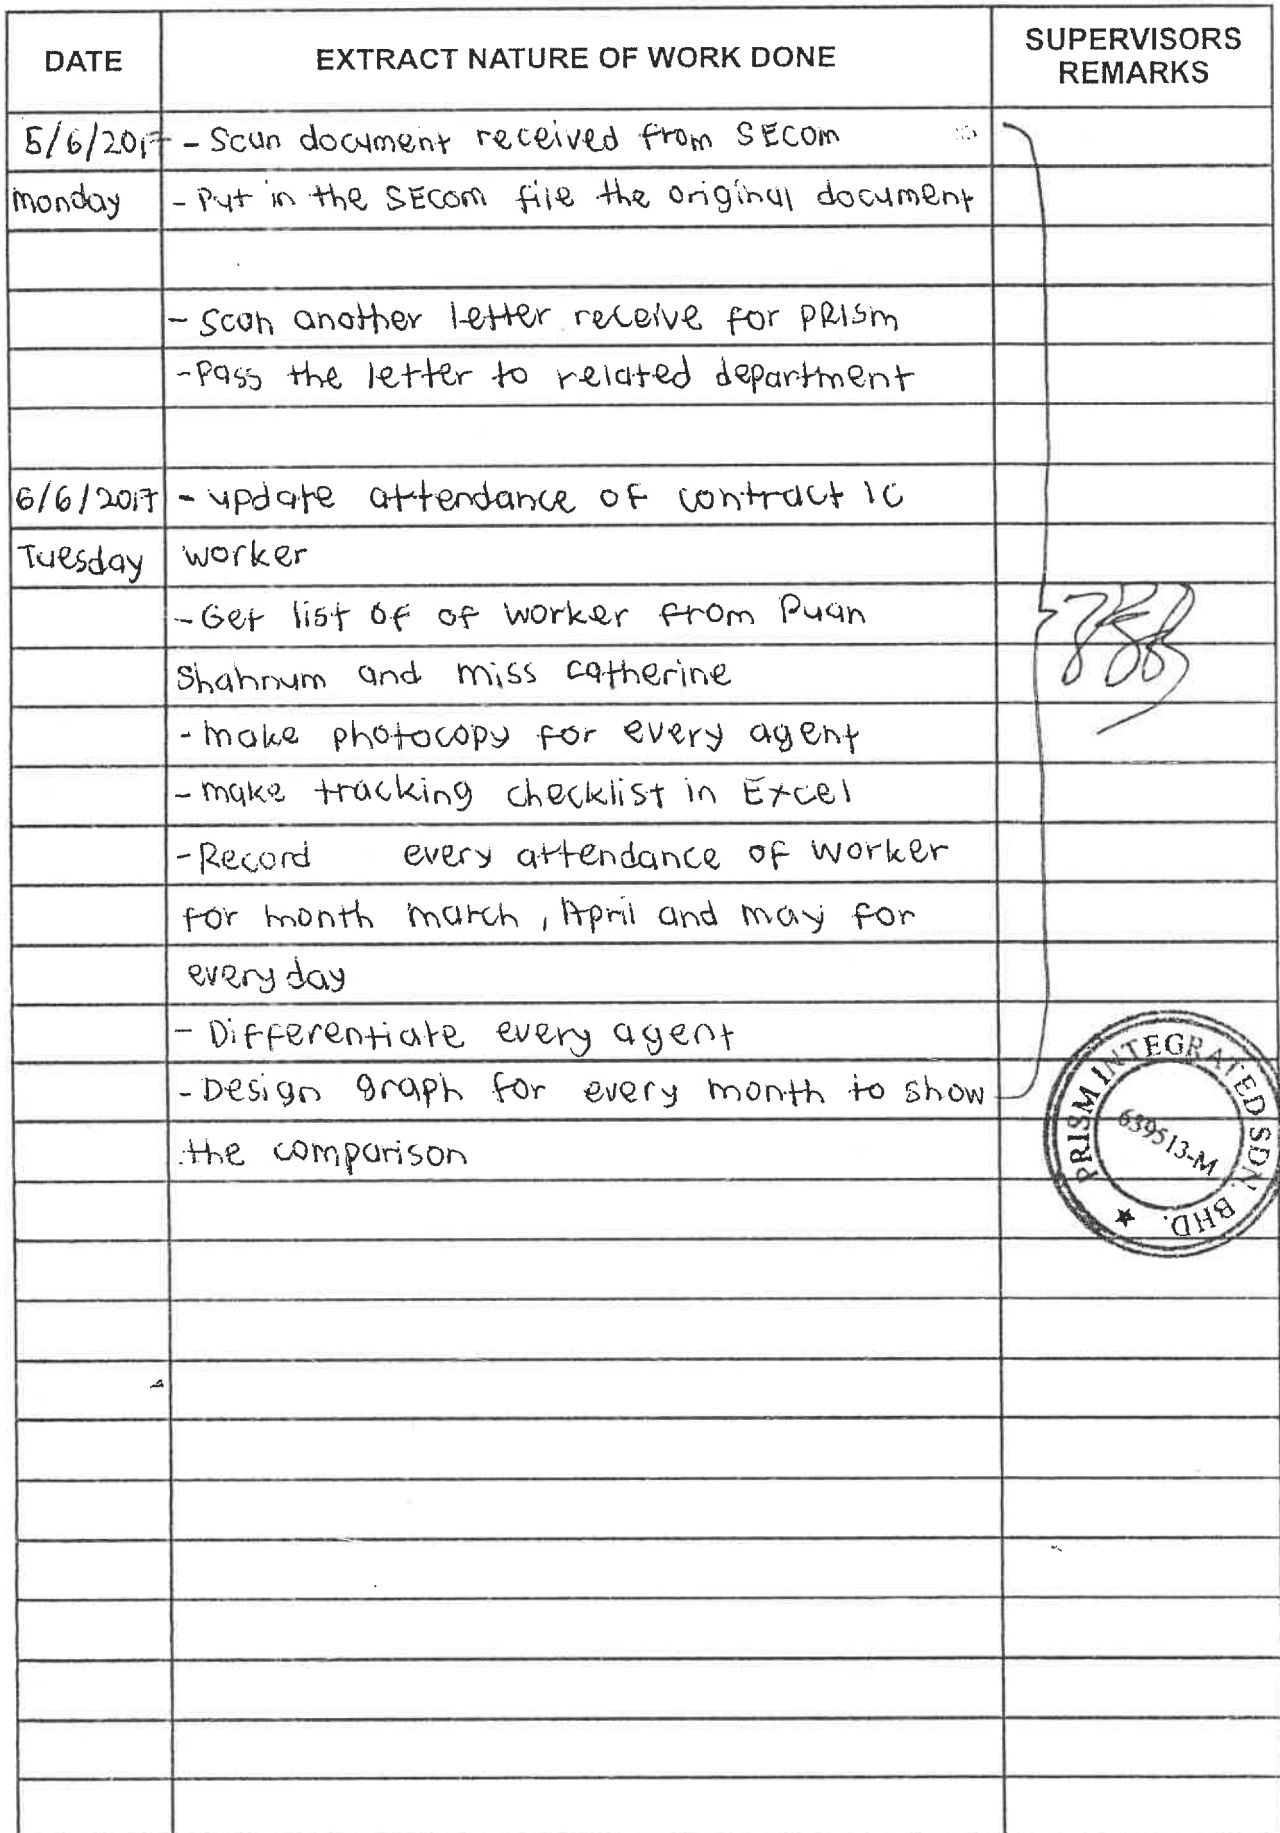 DATE EXTRACT NATURE OF WORK DONE SUPERVISORS REMARKS
5/6/2017 - Scan document received from SECom
monday - Put in the SECom file the original document
- Scan another letter receive for PRISm
- Pass the letter to related department
6/6/2017 - update attendance of contract IC
Tuesday worker
- Get list of of worker from Puan
Shahnum and miss catherine
- make photocopy for every agent
- make tracking checklist in Excel
- Record every attendance of worker
for month march, April and may for
every day
- Differentiate every agent
- Design graph for every month to show
the comparison
PRISM INTEGRATED SDN. BHD.
639513-M